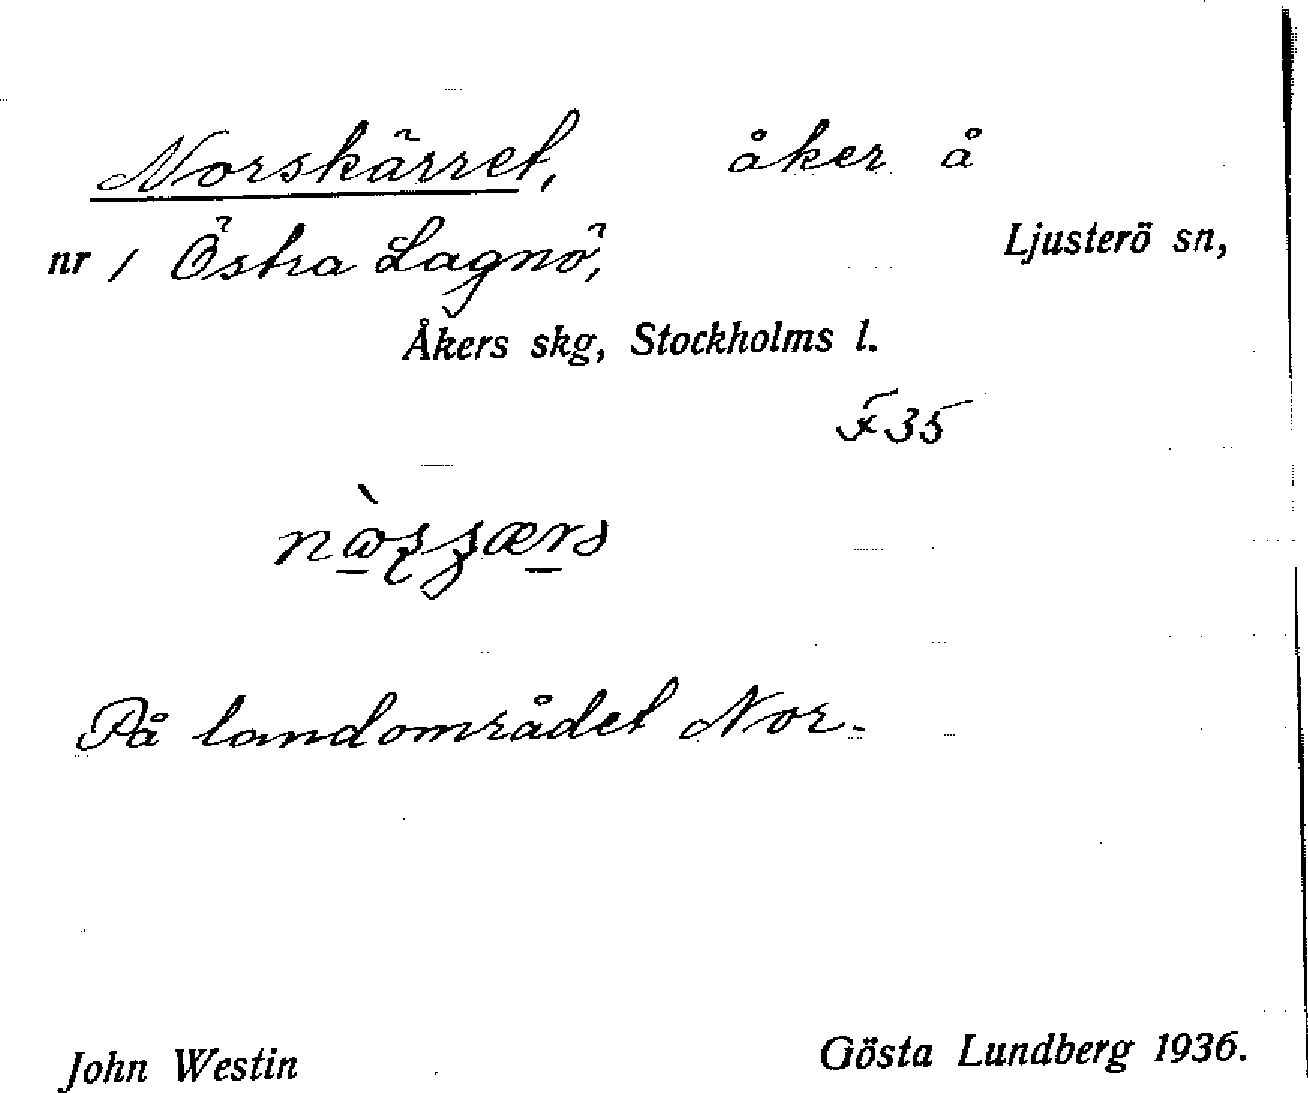 Norskärret, åker å
nr 1 Östra Lagnö, Ljusterö sn,
Åkers skg, Stockholms l.
F35
På landområdet Nor.
John Westin Gösta Lundberg 1936.